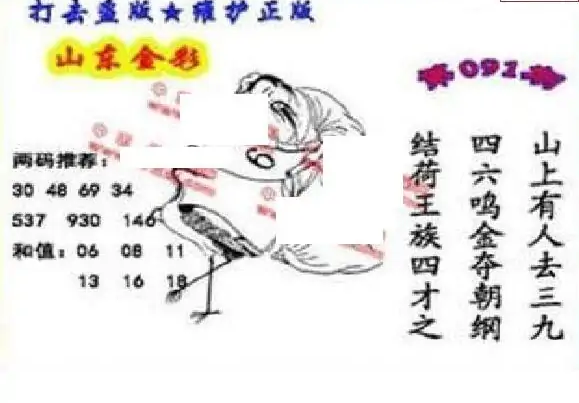 打击盗版★维护正版
山东金彩
091
两码推荐：
30 48 69 34
537 930 146
和值：06 08 11
13 16 18
6
山上有人去三九
四六鸣金夺朝纲
结荷王族四才之